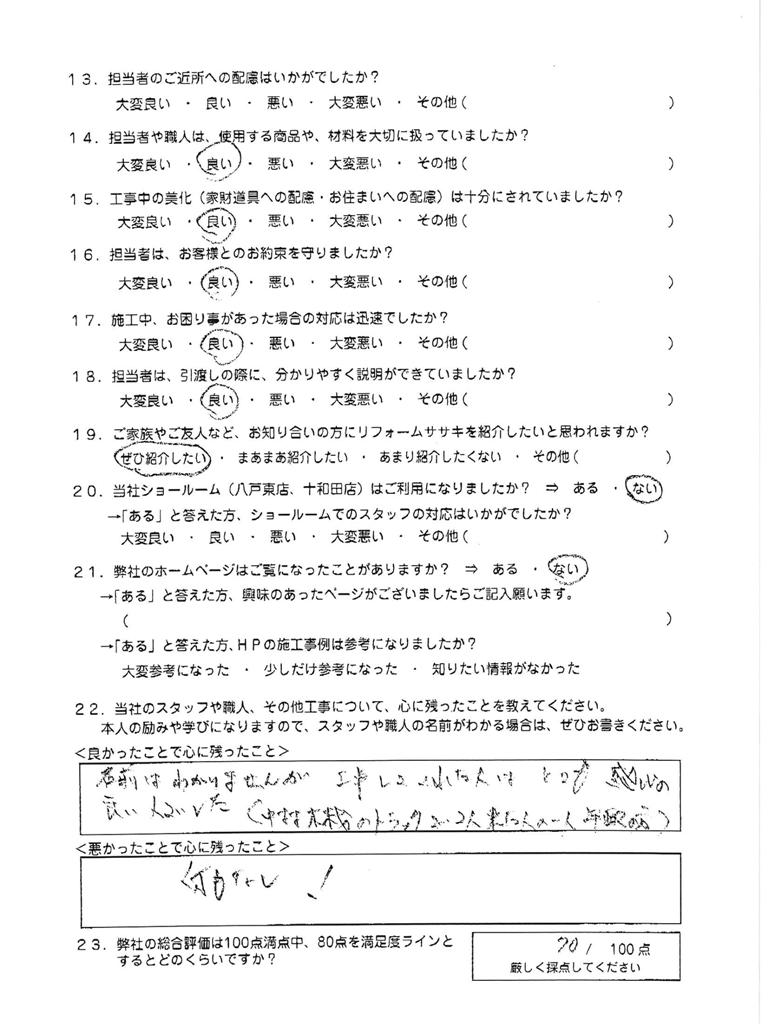 13．担当者のご近所への配慮はいかがでしたか？
大変良い ・ 良い ・ 悪い ・ 大変悪い ・ その他（ ）
14．担当者や職人は、使用する商品や、材料を大切に扱っていましたか？
大変良い ・ 良い ・ 悪い ・ 大変悪い ・ その他（ ）
15．工事中の美化（家財道具への配慮・お住まいへの配慮）は十分にされていましたか？
大変良い ・ 良い ・ 悪い ・ 大変悪い ・ その他（ ）
16．担当者は、お客様とのお約束を守りましたか？
大変良い ・ 良い ・ 悪い ・ 大変悪い ・ その他（ ）
17．施工中、お困り事があった場合の対応は迅速でしたか？
大変良い ・ 良い ・ 悪い ・ 大変悪い ・ その他（ ）
18．担当者は、引渡しの際に、分かりやすく説明ができていましたか？
大変良い ・ 良い ・ 悪い ・ 大変悪い ・ その他（ ）
19．ご家族やご友人など、お知り合いの方にリフォームササキを紹介したいと思われますか？
ぜひ紹介したい ・ まあまあ紹介したい ・ あまり紹介したくない ・ その他（ ）
20．当社ショールーム（八戸東店、十和田店）はご利用になりましたか？ ⇒ ある ・ ない
→「ある」と答えた方、ショールームでのスタッフの対応はいかがでしたか？
大変良い ・ 良い ・ 悪い ・ 大変悪い ・ その他（ ）
21．弊社のホームページはご覧になったことがありますか？ ⇒ ある ・ ない
→「ある」と答えた方、興味のあったページがございましたらご記入願います。
（ ）
→「ある」と答えた方、ＨＰの施工事例は参考になりましたか？
大変参考になった ・ 少しだけ参考になった ・ 知りたい情報がなかった
22．当社のスタッフや職人、その他工事について、心に残ったことを教えてください。
本人の励みや学びになりますので、スタッフや職人の名前がわかる場合は、ぜひお書きください。
＜良かったことで心に残ったこと＞
名前はわかりませんが 工事してくれた人は とても 感じの
良い人でした （ のトラックで2人来た人の
＜悪かったことで心に残ったこと＞
何もなし！
23．弊社の総合評価は100点満点中、80点を満足度ラインと
するとどのくらいですか？
/ 100点
厳しく採点してください